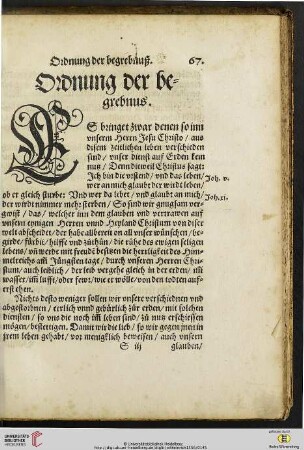 Ordnung der begrebnuß. 67.
Ordnung der be-
grebnus.
ES bringet zwar denen so im
vnseren Herrn Jesu Christo / aus
disem zeitlichen leben verschieden
sind / vnser dienst auf Erden kein
nutz / Dann dieweil Christus sagt:
Ich bin die vrstend / vnd das leben /
wer an mich glaubt der wirdt leben /
Joh. v.
ob er gleich sturbe: Vnd wer da lebet / vnd glaubt an mich /
der wirdt nimmer mehr sterben / So sind wir gnugsam ver-
Joh. xi.
gwißt / das / welcher inn dem glauben vnd vertrawen auf
vnseren einigen Herren vnnd Heyland Christum von diser
welt abscheidt / der habe allbereit an all vnser wünschen / be-
girde / fürbit / hilffe vnd züthün / die rühe des ewigen seligen
lebens / vnd werde mit freude besitzen die herrligkeit des Him-
melreichs am Jüngsten tage / durch vnseren Herrn Chri-
stum / auch leiblich / der leib vergehe gleich in der erden / im
wasser / im lufft / oder fewr / wie er wölle / von den todten auf-
erstehen.
Nichts desto weniger sollen wir vnsere verschidnen vnd
abgestorbnen / eerlich vnnd gebürlich zür erden / mit solchen
diensten / so vns die noch im leben sind / zü nutz erschiessen
mögen / bestettigen. Damit wir die lieb / so wir gegen jnen in
jrem leben gehabt / vor mengklich beweisen / auch vnsern
S iij glauben /
UNIVERSITÄTS-
BIBLIOTHEK
HEIDELBERG
© Universitätsbibliothek Heidelberg